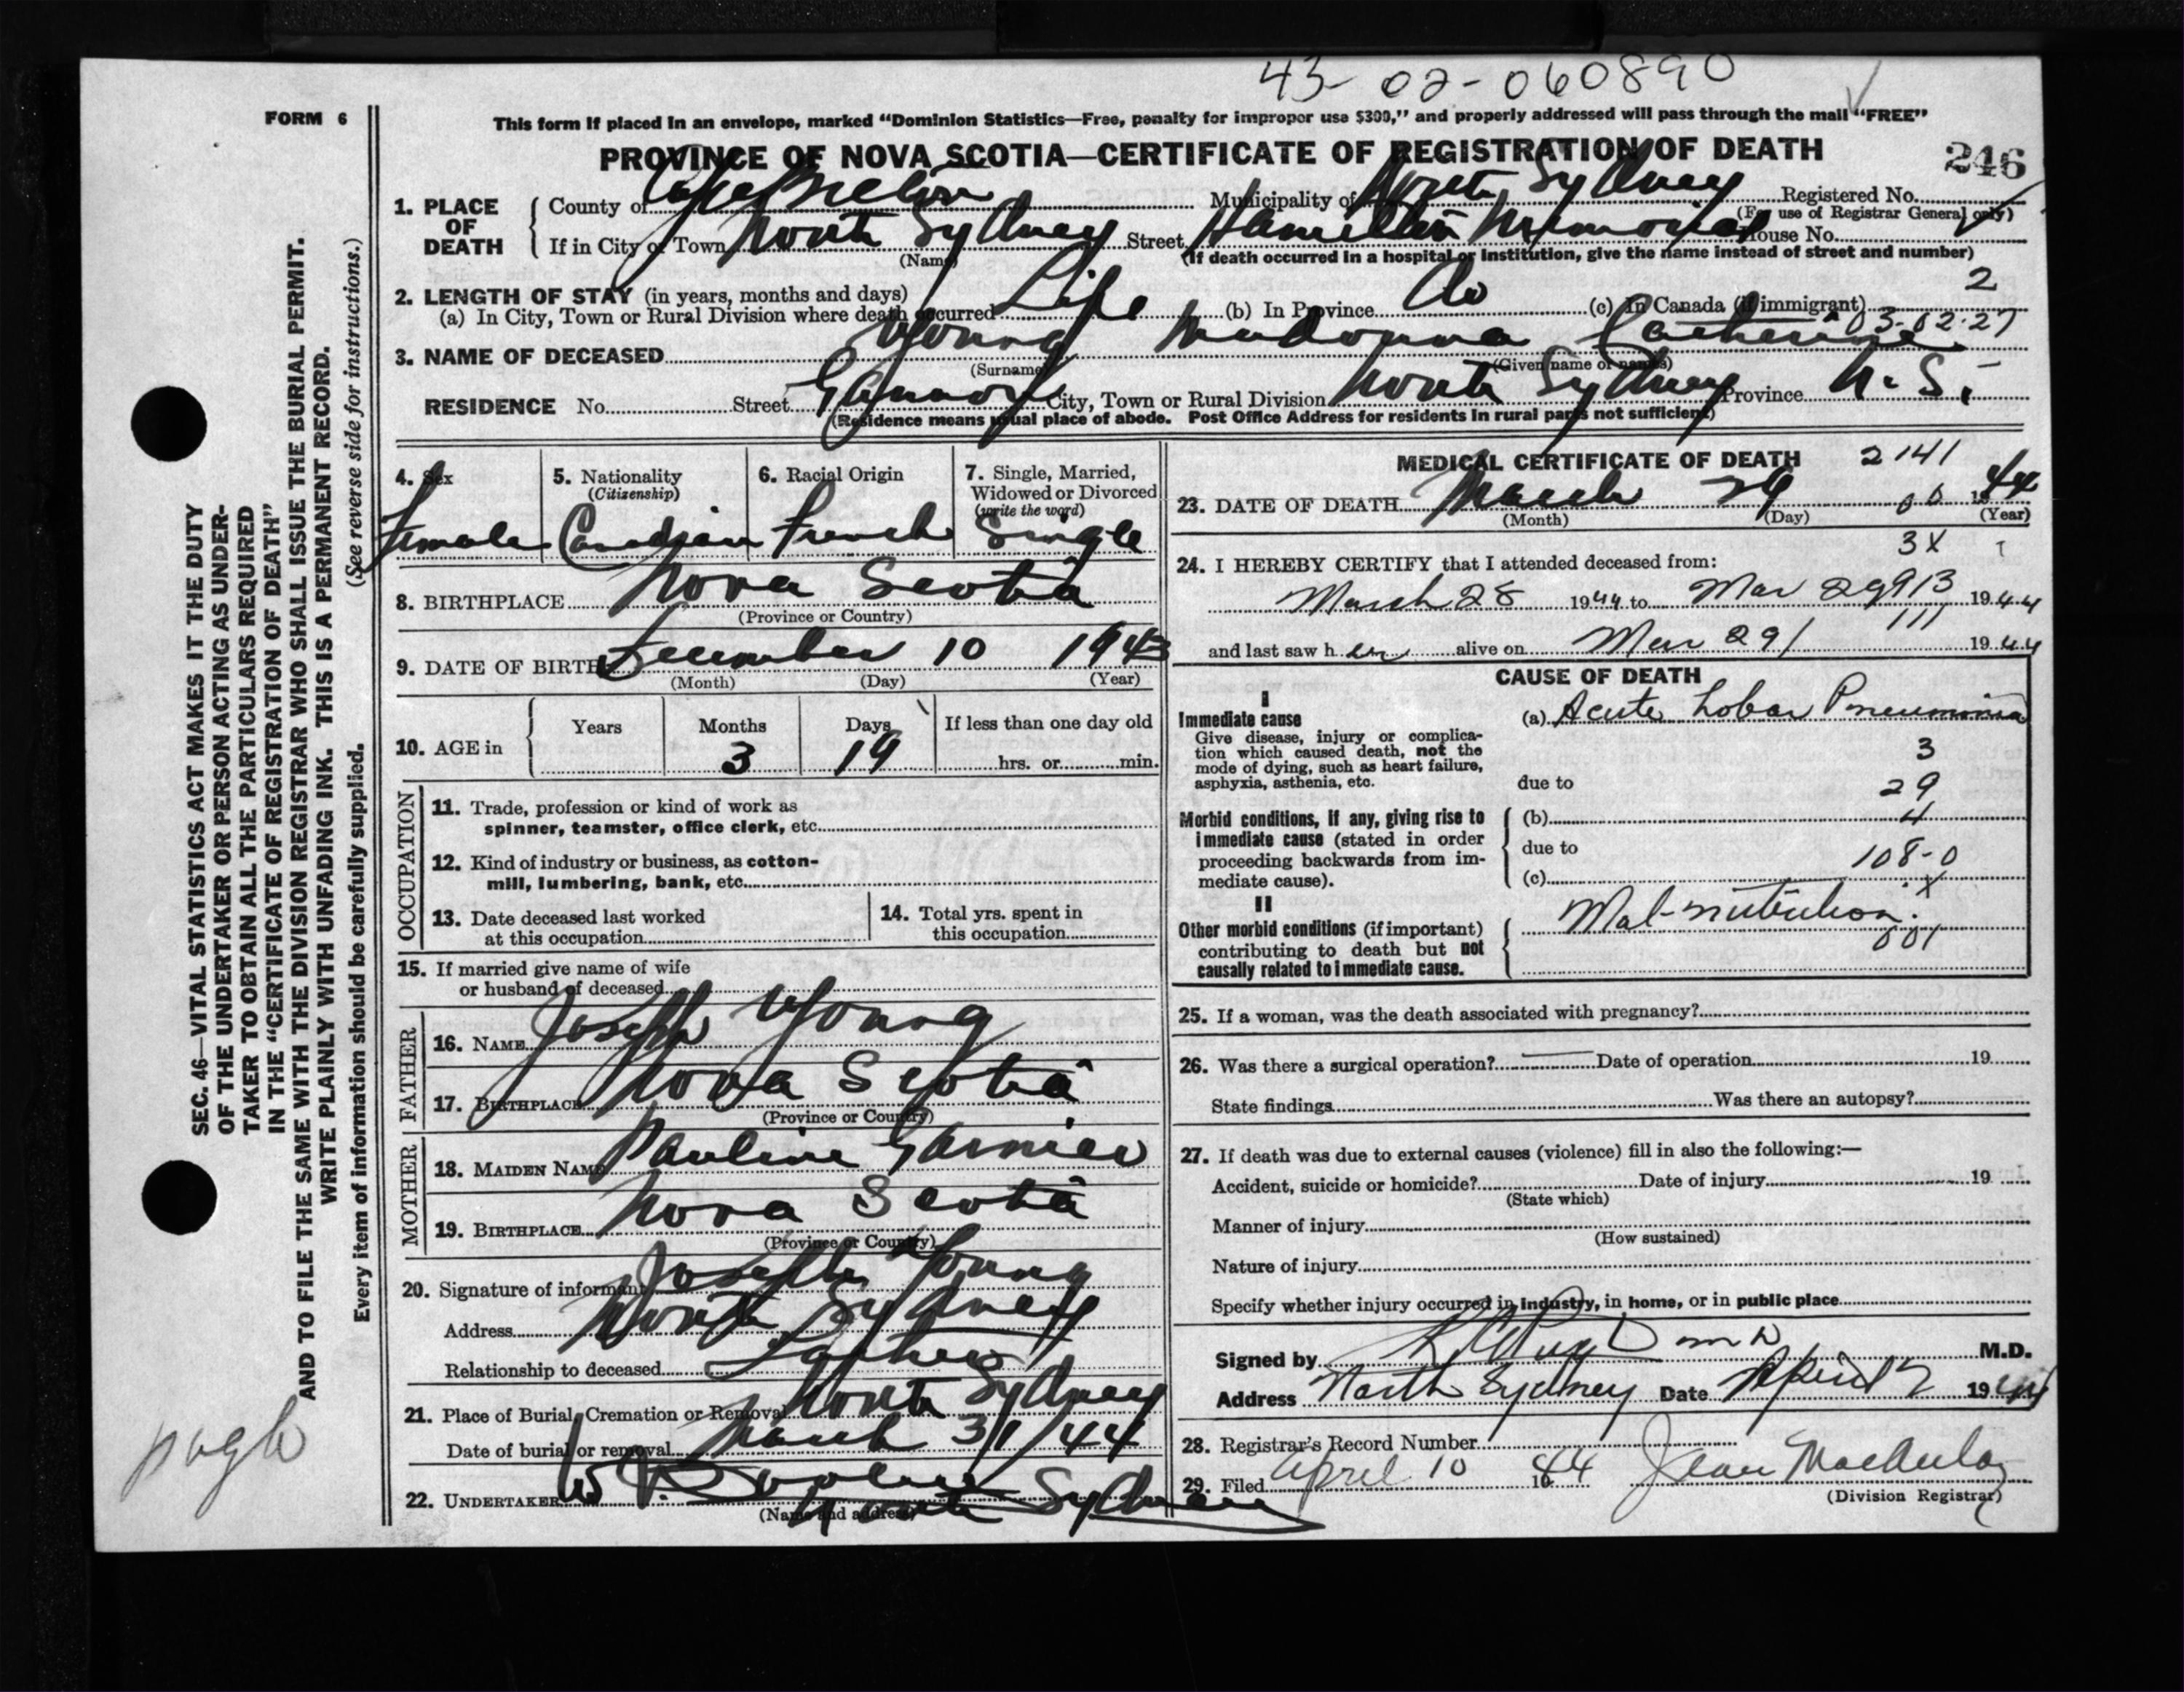 43-02-060890
FORM 6
This form if placed in an envelope, marked “Dominion Statistics—Free, penalty for improper use $300,” and properly addressed will pass through the mail “FREE”
PROVINCE OF NOVA SCOTIA—CERTIFICATE OF REGISTRATION OF DEATH
246
1. PLACE OF DEATH
County of Cape Breton Municipality of North Sydney Registered No.
(For use of Registrar General only)
If in City or Town North Sydney Street Hamilton Memorial House No.
(Name) (If death occurred in a hospital or institution, give the name instead of street and number)
2. LENGTH OF STAY (in years, months and days) 2
(a) In City, Town or Rural Division where death occurred Life (b) In Province Do (c) In Canada (if immigrant)
03-02-27
3. NAME OF DECEASED Young Madonna Catherine
(Surname) (Given name or names)
RESIDENCE No. Street City, Town or Rural Division North Sydney Province N.S.
(Residence means usual place of abode. Post Office Address for residents in rural parts not sufficient)
4. Sex Female
5. Nationality (Citizenship) Canadian
6. Racial Origin French
7. Single, Married, Widowed or Divorced (write the word) Single
8. BIRTHPLACE Nova Scotia
(Province or Country)
9. DATE OF BIRTH December 10 1943
(Month) (Day) (Year)
10. AGE in
Years Months Days If less than one day old
3 19 hrs. or min.
OCCUPATION
11. Trade, profession or kind of work as
spinner, teamster, office clerk, etc.
12. Kind of industry or business, as cotton-
mill, lumbering, bank, etc.
13. Date deceased last worked
at this occupation
14. Total yrs. spent in
this occupation
15. If married give name of wife
or husband of deceased
FATHER
16. NAME Joseph Young
17. BIRTHPLACE Nova Scotia
(Province or Country)
MOTHER
18. MAIDEN NAME Pauline Garnier
19. BIRTHPLACE Nova Scotia
(Province or Country)
20. Signature of informant Joseph Young
Address North Sydney
Relationship to deceased Father
21. Place of Burial, Cremation or Removal North Sydney
Date of burial or removal March 31/44
22. UNDERTAKER
North Sydney
(Name and address)
MEDICAL CERTIFICATE OF DEATH 2141
23. DATE OF DEATH March 29 00 1944
(Month) (Day) (Year)
3X
24. I HEREBY CERTIFY that I attended deceased from:
March 28 1944 to Mar 29 1944
913
111
and last saw her alive on Mar 29/ 1944
CAUSE OF DEATH
I
Immediate cause
Give disease, injury or complica-
tion which caused death, not the
mode of dying, such as heart failure,
asphyxia, asthenia, etc.
(a) Acute Lobar Pneumonia
3
due to 29
Morbid conditions, if any, giving rise to
immediate cause (stated in order
proceeding backwards from im-
mediate cause).
(b) 4
due to 108-0
(c) X
II
Other morbid conditions (if important)
contributing to death but not
causally related to immediate cause.
Mal-nutrition.
001
25. If a woman, was the death associated with pregnancy?
26. Was there a surgical operation? — Date of operation 19
State findings Was there an autopsy?
27. If death was due to external causes (violence) fill in also the following:—
Accident, suicide or homicide? Date of injury 19
(State which)
Manner of injury
(How sustained)
Nature of injury
Specify whether injury occurred in industry, in home, or in public place
Signed by Pugh MD M.D.
Address North Sydney Date April 1944
28. Registrar's Record Number
29. Filed April 10 1944 Jean MacAulay
(Division Registrar)
SEC. 46—VITAL STATISTICS ACT MAKES IT THE DUTY
OF THE UNDERTAKER OR PERSON ACTING AS UNDER-
TAKER TO OBTAIN ALL THE PARTICULARS REQUIRED
IN THE “CERTIFICATE OF REGISTRATION OF DEATH”
AND TO FILE THE SAME WITH THE DIVISION REGISTRAR WHO SHALL ISSUE THE BURIAL PERMIT.
WRITE PLAINLY WITH UNFADING INK. THIS IS A PERMANENT RECORD.
(See reverse side for instructions.)
Every item of information should be carefully supplied.
pugh